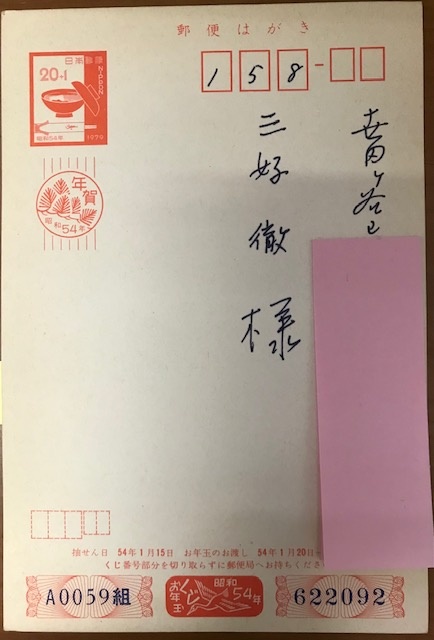 郵便はがき
日本郵便
NIPPON
20+1
昭和54年
1979
158-
世田ヶ谷区
三好徹様
年賀
昭和54年
抽せん日 54年1月15日 お年玉のお渡し 54年1月20日
くじ番号部分を切り取らずに郵便局へお持ちくださ
A0059組
お年玉
くじ
昭和
54年
622092